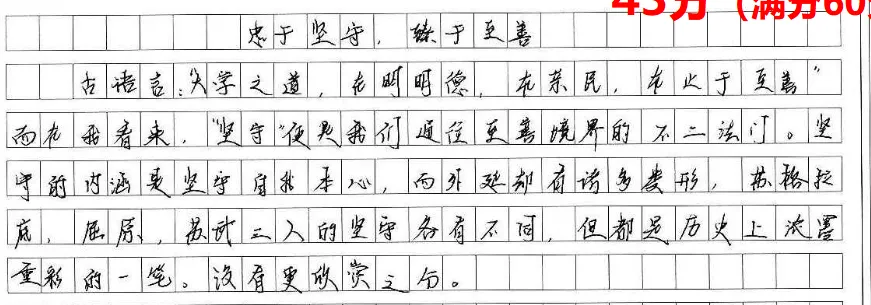 分（满分60
忠于坚守，臻于至善
古语言：“大学之道，在明明德，在亲民，在止于至善”
而在我看来，“坚守”便是我们通往至善境界的不二法门。坚
守的内涵是坚守自我本心，而外延却有诸多变形，苏格拉
底，屈原，苏武三人的坚守各有不同，但都是历史上浓墨
重彩的一笔。没有更欣赏之分。